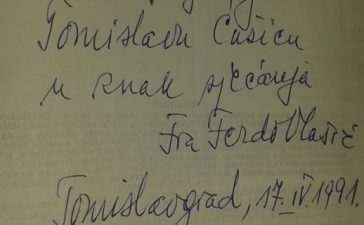 Tomislavu Ćašiću
u znak sjećanja
Fra Ferdo Vlašić
Tomislavgrad, 17. IV. 1991.